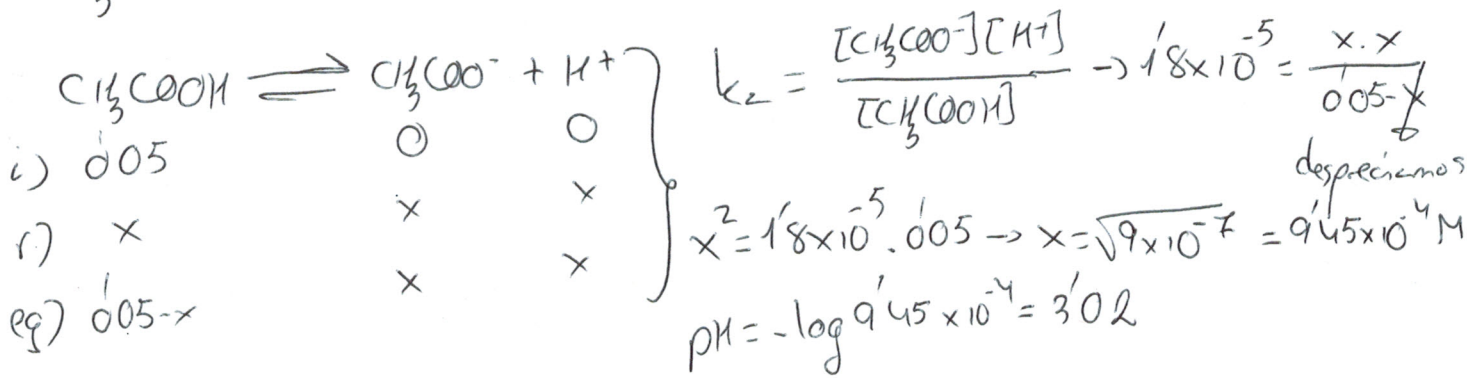 CH₃COOH ⇌ CH₃COO⁻ + H⁺
i) 0'05 0 0
r) x x x
eq) 0'05-x x x
k₂ = [CH₃COO⁻][H⁺] / [CH₃COOH] → 1'8x10⁻⁵ = x.x / 0'05-x
despreciamos
x² = 1'8x10⁻⁵ . 0'05 → x = √9x10⁻⁷ = 9'45x10⁻⁴ M
pH = -log 9'45 x 10⁻⁴ = 3'02